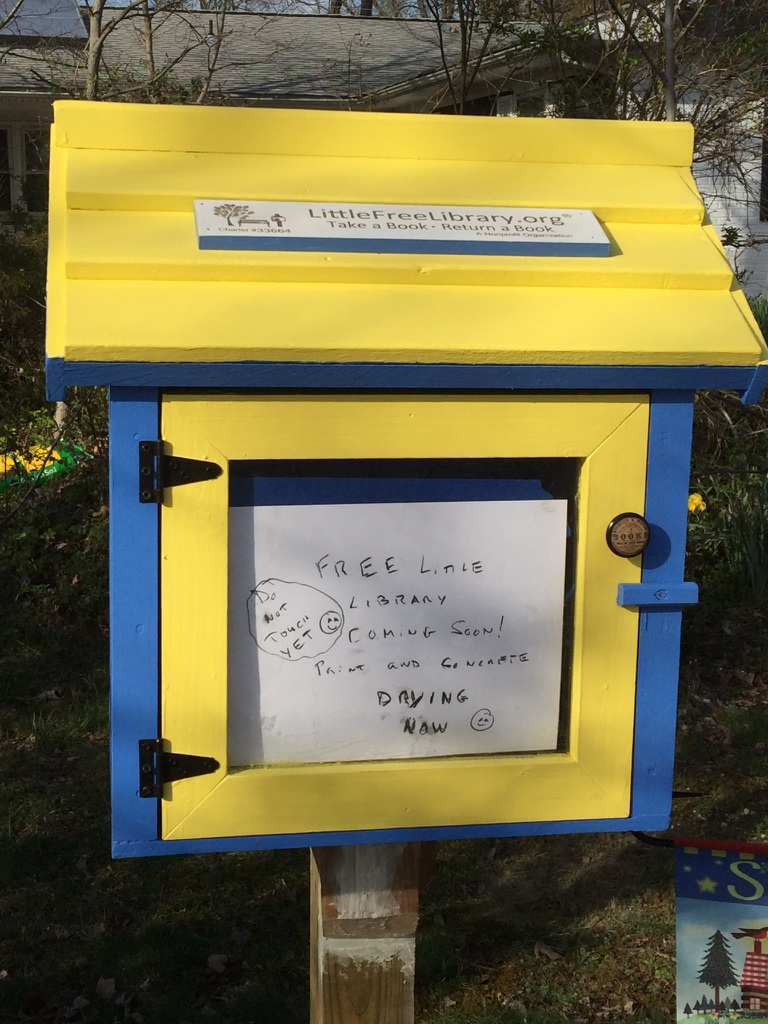 LittleFreeLibrary.org®
Take a Book • Return a Book
Charter #33664
A Nonprofit Organization
BOOKS
FREE LITTLE
LIBRARY
COMING SOON!
PAINT AND CONCRETE
DRYING
NOW
DO
NOT
TOUCH
YET
S